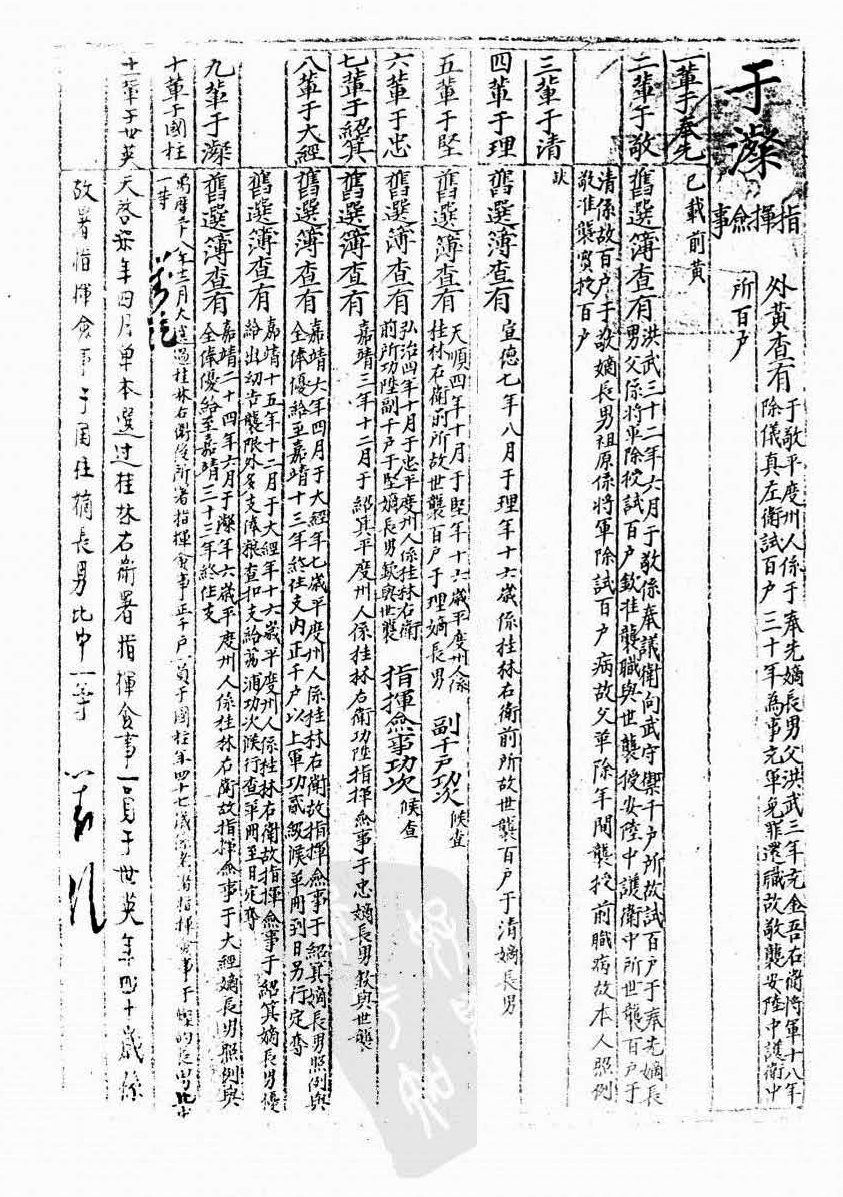 于濴
指揮僉事
外黃查有
于敬平度州人係于奉先嫡長男父洪武三年充金吾右衛將軍十八年
除儀真左衛試百戶三十年為事充軍免罪還職故敬襲安陸中護衛中
所百戶
一輩于奉先
已載前黃
二輩于敬
舊選簿查有
洪武三十二年六月于敬係奉議衛向武守禦千戶所故試百戶于奉先嫡長
男父係將軍除授試百戶欽准襲職與世襲授安陸中護衛中所世襲百戶于
清係故百戶于敬嫡長男祖原係將軍除試百戶病故父革除年間襲授前職病故本人照例
敬准襲實授百戶
三輩于清
缺
四輩于理
舊選簿查有
宣德七年八月于理年十六歲係桂林右衛前所故世襲百戶于清嫡長男
五輩于堅
舊選簿查有
天順四年十月于堅年十六歲平度州人係
桂林右衛前所故世襲百戶于理嫡長男
副千戶功次
候查
六輩于忠
舊選簿查有
弘治四年十月于忠平度州人係桂林右衛
前所功陞副千戶于堅嫡長男欽與世襲
指揮僉事功次
候查
七輩于紹箕
舊選簿查有
嘉靖三年十二月于紹箕平度州人係桂林右衛功陞指揮僉事于忠嫡長男欽與世襲
八輩于大經
舊選簿查有
嘉靖六年四月于大經年七歲平度州人係桂林右衛故指揮僉事于紹箕嫡長男照例與
全俸優給至嘉靖十三年終住支內正千戶以上軍功貳級候單冊到日另行定奪
舊選簿查有
嘉靖十五年十二月于大經年十六歲平度州人係桂林右衛故指揮僉事于紹箕嫡長男優
給出幼告襲限外多支俸糧查扣支給荔浦功次候行查單冊至日定奪
九輩于濴
舊選簿查有
嘉靖二十四年六月于濴年六歲平度州人係桂林右衛故指揮僉事于大經嫡長男照例與
全俸優給至嘉靖三十三年終住支
十輩于國柱
萬曆十八年十二月大選過桂林右衛後所署指揮僉事正千戶一員于國柱年四十七歲係老署指揮僉事于濴的長男比中
一等
十一輩于世英
天啓柒年四月單本選過桂林右衛署指揮僉事一員于世英年四十歲係
故署指揮僉事于國柱嫡長男比中一等